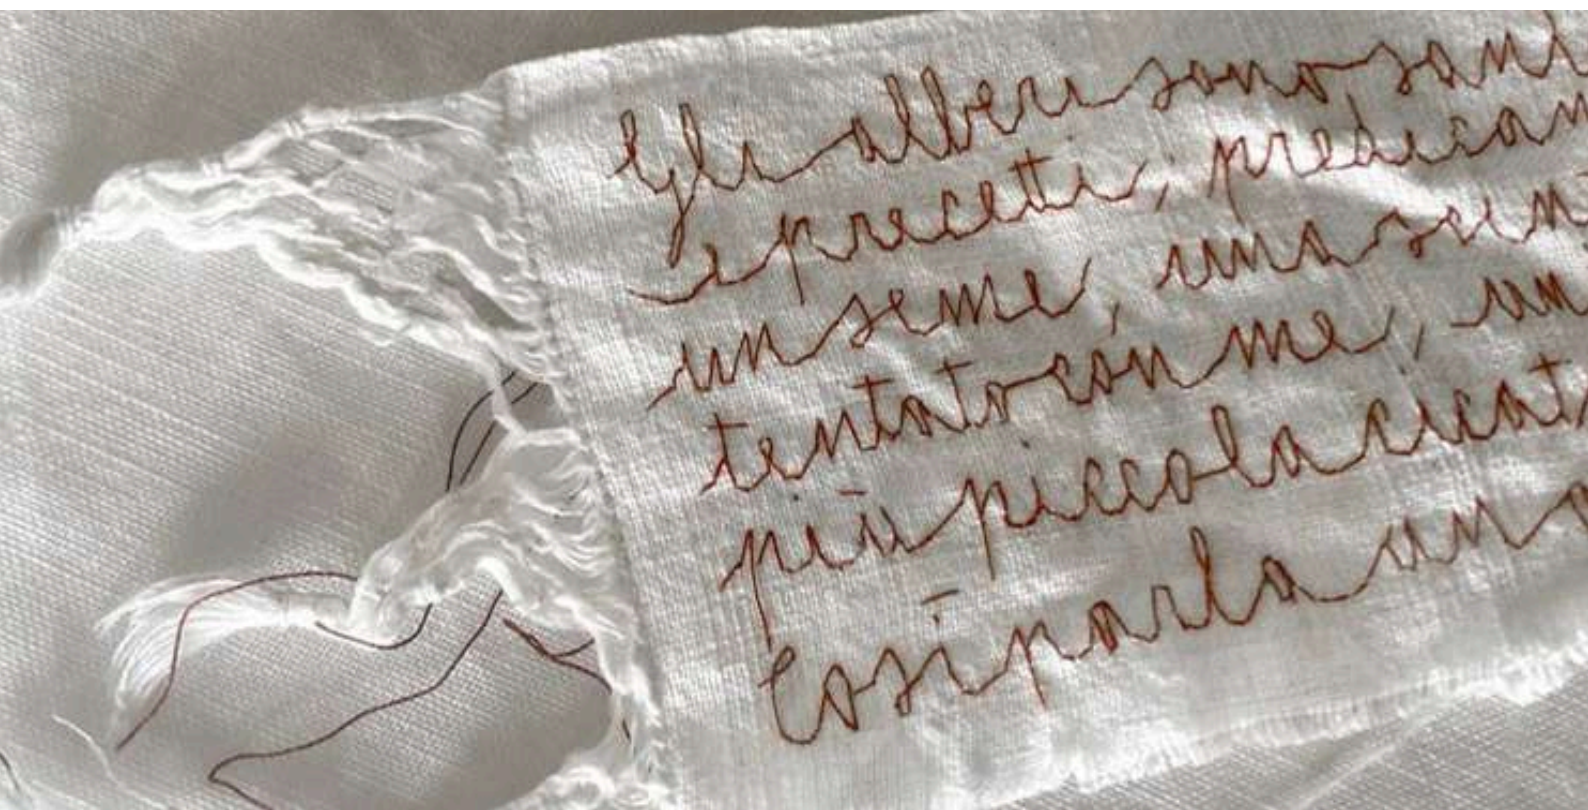 Gli alberi sono sant
e precetti, predican
un seme, una scin
tentato con me, un
più piccola cicat
Così parla un a